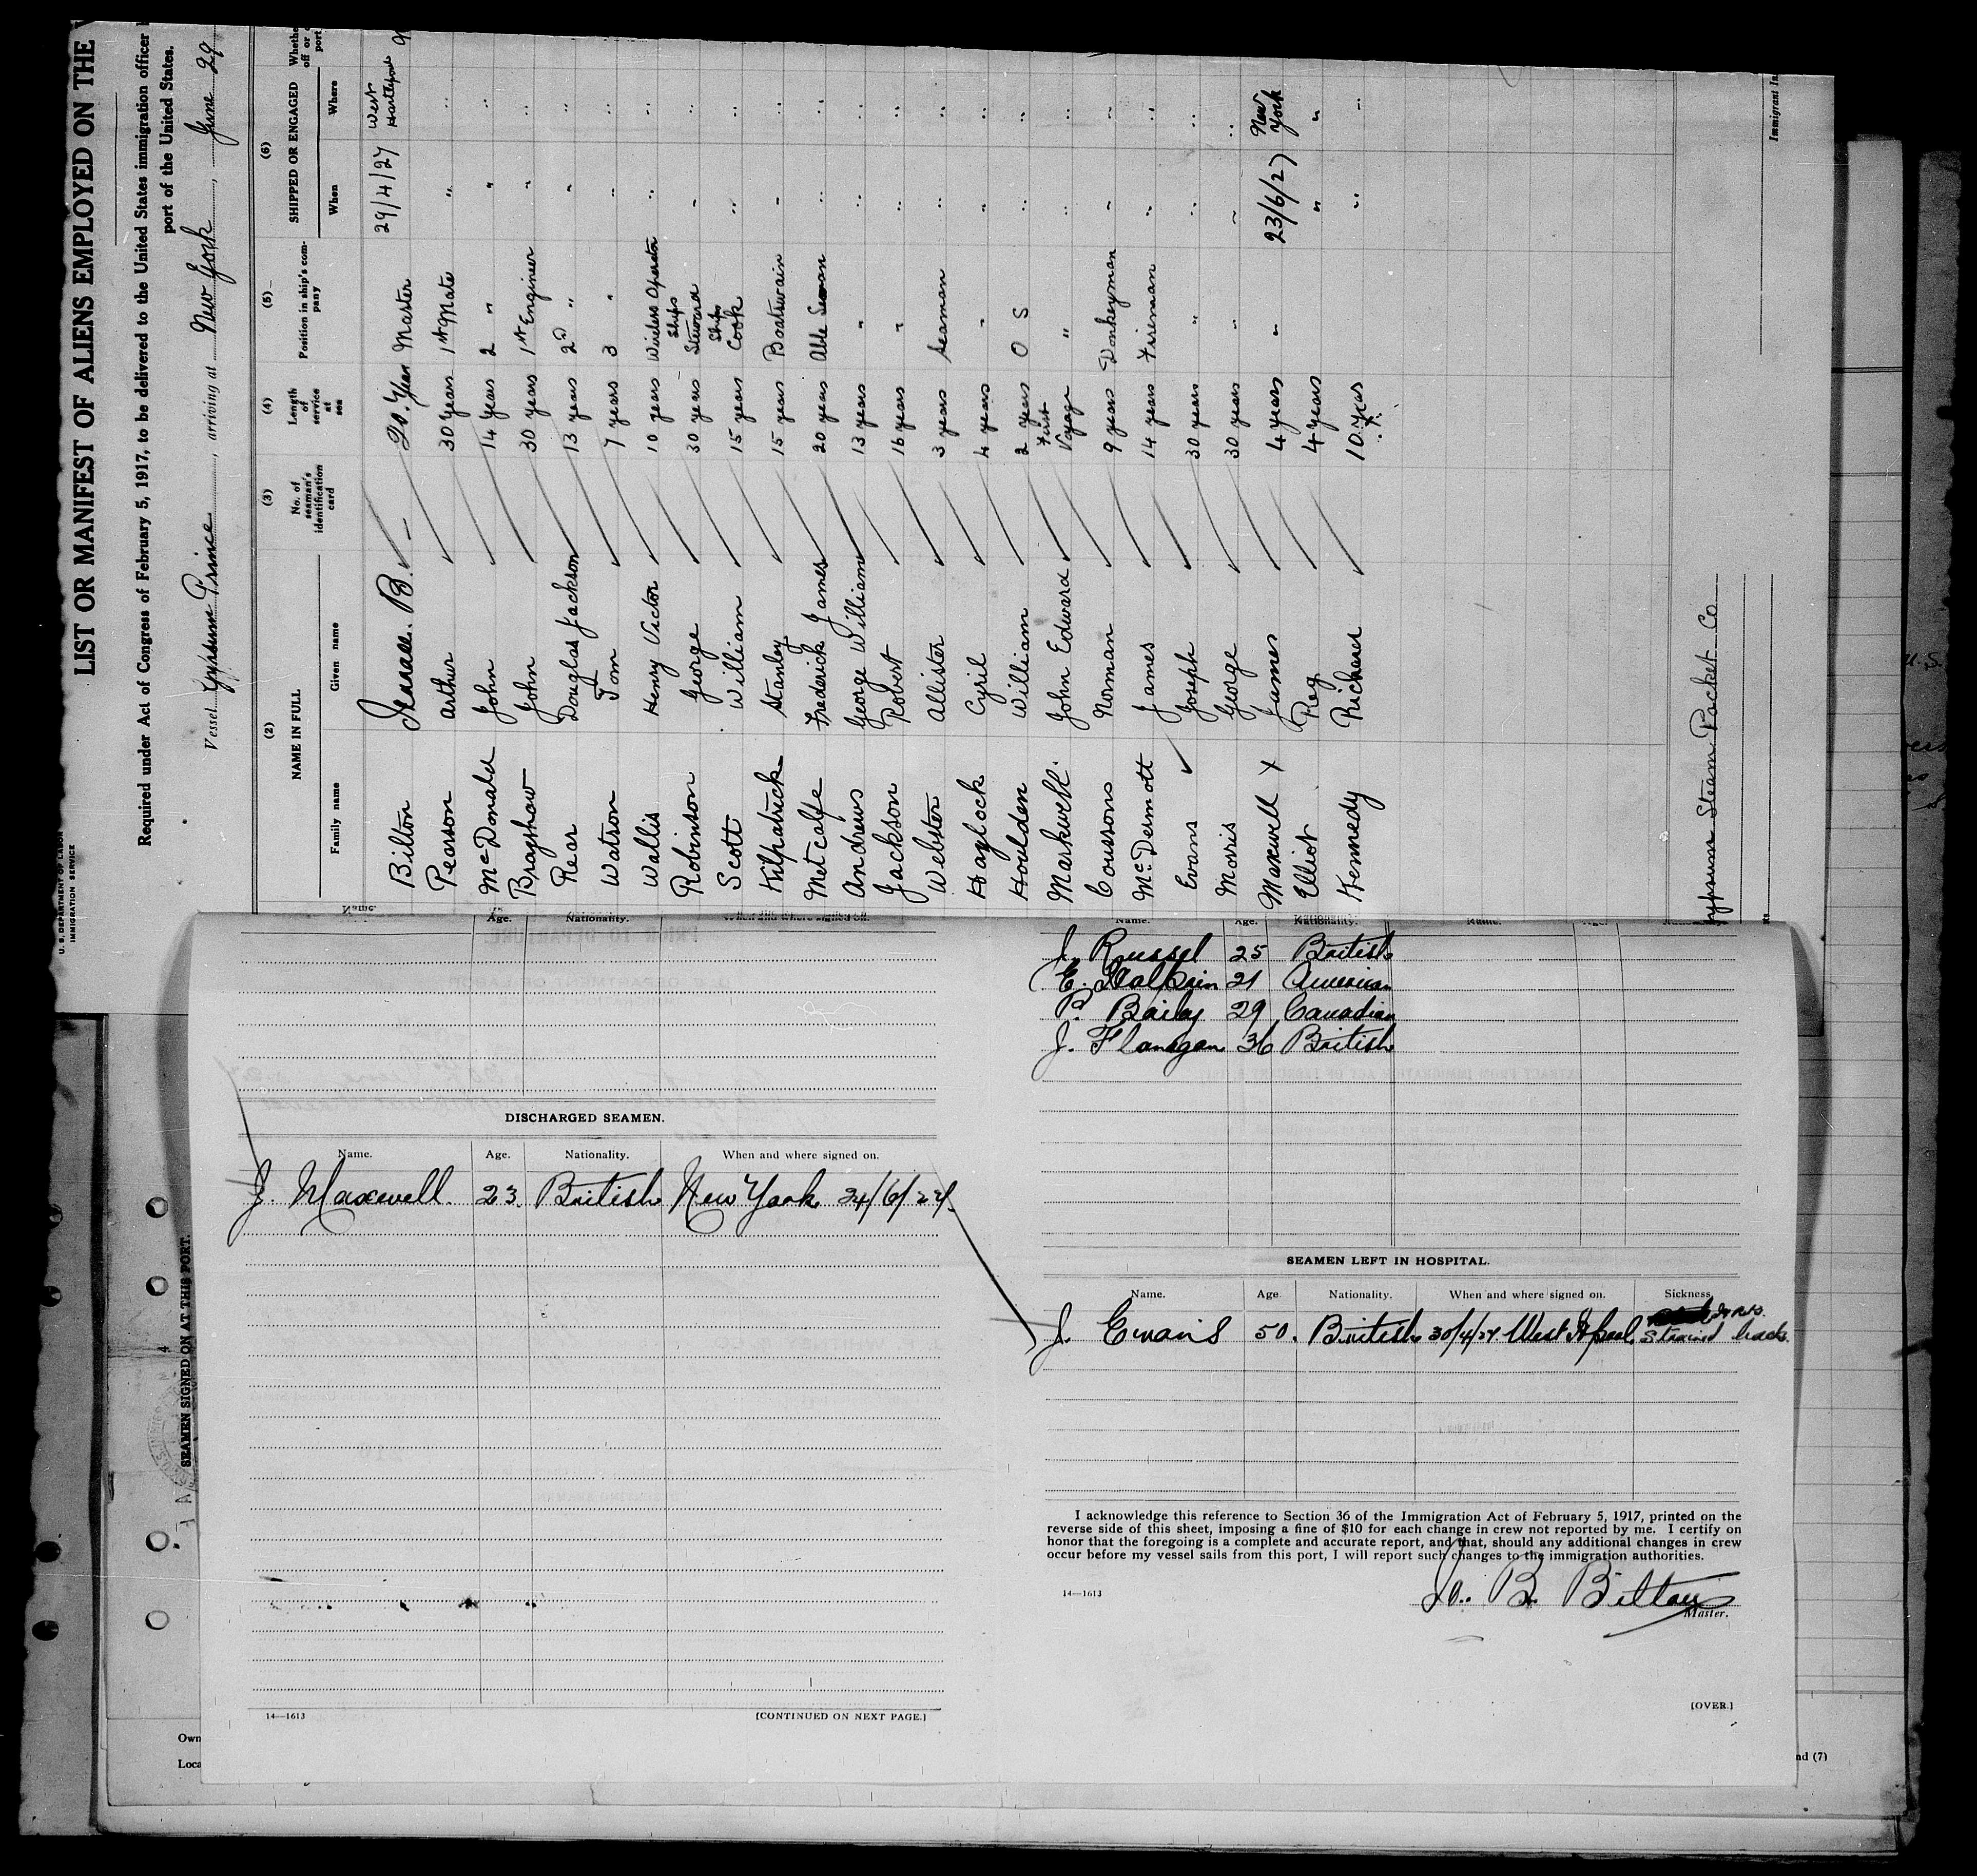 U. S. DEPARTMENT OF LABOR
IMMIGRATION SERVICE
LIST OR MANIFEST OF ALIENS EMPLOYED ON THE
Required under Act of Congress of February 5, 1917, to be delivered to the United States immigration officer
port of the United States.
Vessel Gypsum Prince, arriving at New York, June 29
(2) (3) (4) (5) (6)
NAME IN FULL No. of seaman's identification card Length of service at sea Position in ship's company SHIPPED OR ENGAGED
Family name Given name When Where
Bilton B. 20 Years Master 29/4/27 West Hartlepool
Pearson Arthur 30 Years 1st Mate " "
McDonald John 14 years 2 " " "
Brayshaw John 30 years 1st Engineer " "
Rear Douglas Jackson 13 years 2d " " "
Watson Tom 7 years 3 " " "
Wallis Henry Victor 10 years Wireless Operator " "
Robinson George 30 years Ships Steward " "
Scott William 15 years Ships Cook " "
Kilpatrick Stanley 15 years Boatswain " "
Metcalfe Frederick James 20 years Able Seaman " "
Andrews George William 13 years " " "
Jackson Robert 16 years " " "
Webster Allister 3 years Seaman " "
Haylock Cyril 4 years " " "
Houlden William 2 years O S " "
Markwell John Edward First Voyage " " "
Coussons Norman 9 years Donkeyman " "
McDermott James 14 years Fireman " "
Evans Joseph 30 years " " "
Morris George 30 years " " "
Maxwell X James 4 years " 23/6/27 New York
Elliot Reg 4 years " "
Kennedy Richard 10 years " "
Gypsum Steam Packet Co
Immigrant In
Name. Age. Nationality. When and where signed on.
DISCHARGED SEAMEN.
Name. Age. Nationality. When and where signed on.
J. Maxwell 23. British New York 24/6/27
14—1613 [CONTINUED ON NEXT PAGE.]
Name. Age. Nationality. Name. Age.
J. Russel 25 British
E. Halpin 21 American
P. Baily 29 Canadian
J. Flanagan 36 British
SEAMEN LEFT IN HOSPITAL.
Name. Age Nationality. When and where signed on. Sickness
J. Evans 50. British 30/4/27 West Hpool. Strained back.
I acknowledge this reference to Section 36 of the Immigration Act of February 5, 1917, printed on the
reverse side of this sheet, imposing a fine of $10 for each change in crew not reported by me. I certify on
honor that the foregoing is a complete and accurate report, and that, should any additional changes in crew
occur before my vessel sails from this port, I will report such changes to the immigration authorities.
14—1613
B. Bilton
Master.
[OVER.]
SEAMEN SIGNED ON AT THIS PORT.
4
Own
Loca
nd (7)